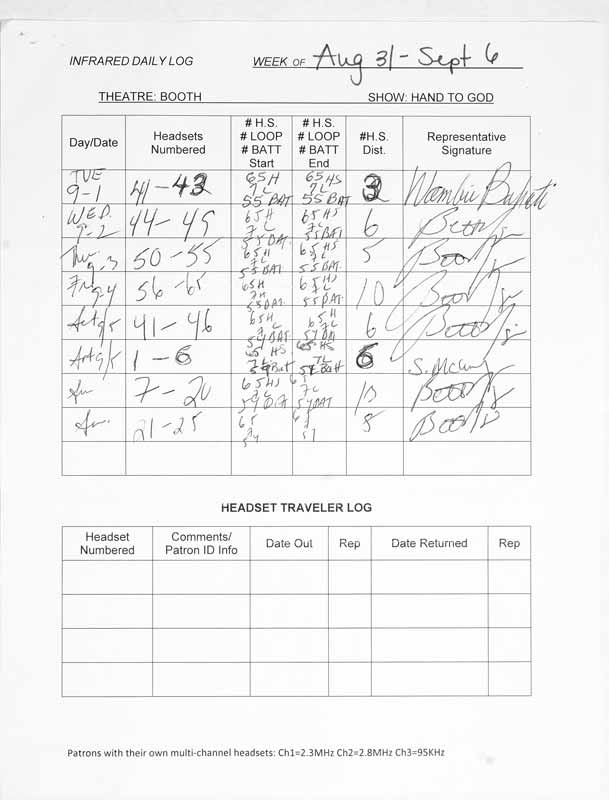 INFRARED DAILY LOG WEEK OF Aug 31 - Sept 6
THEATRE: BOOTH SHOW: HAND TO GOD
Day/Date Headsets Numbered # H.S. # LOOP # BATT Start # H.S. # LOOP # BATT End #H.S. Dist. Representative Signature
TUE 9-1 41-43 65H 7L 55BAT 65HS 7L 55BAT 3
WED. 9-2 44-49 65H 7L 55BAT. 65HS 7L 55BAT. 6
Thu. 9-3 50-55 65H 7L 55BAT 65H 7L 55BAT. 5
Fri 9-4 56-65 65H 55BAT. 65HS 7L 55BAT. 10
9/5 41-46 65H 7L 54BAT 65H 7L 6
9/5 1-6 65 HS 7L 54Batt 65 HS 7L 54Batt 6
7-20 65HS 7L 7L 54BAT
21-25 65 8
HEADSET TRAVELER LOG
Headset Numbered Comments/ Patron ID Info Date Out Rep Date Returned Rep
Patrons with their own multi-channel headsets: Ch1=2.3MHz Ch2=2.8MHz Ch3=95KHz